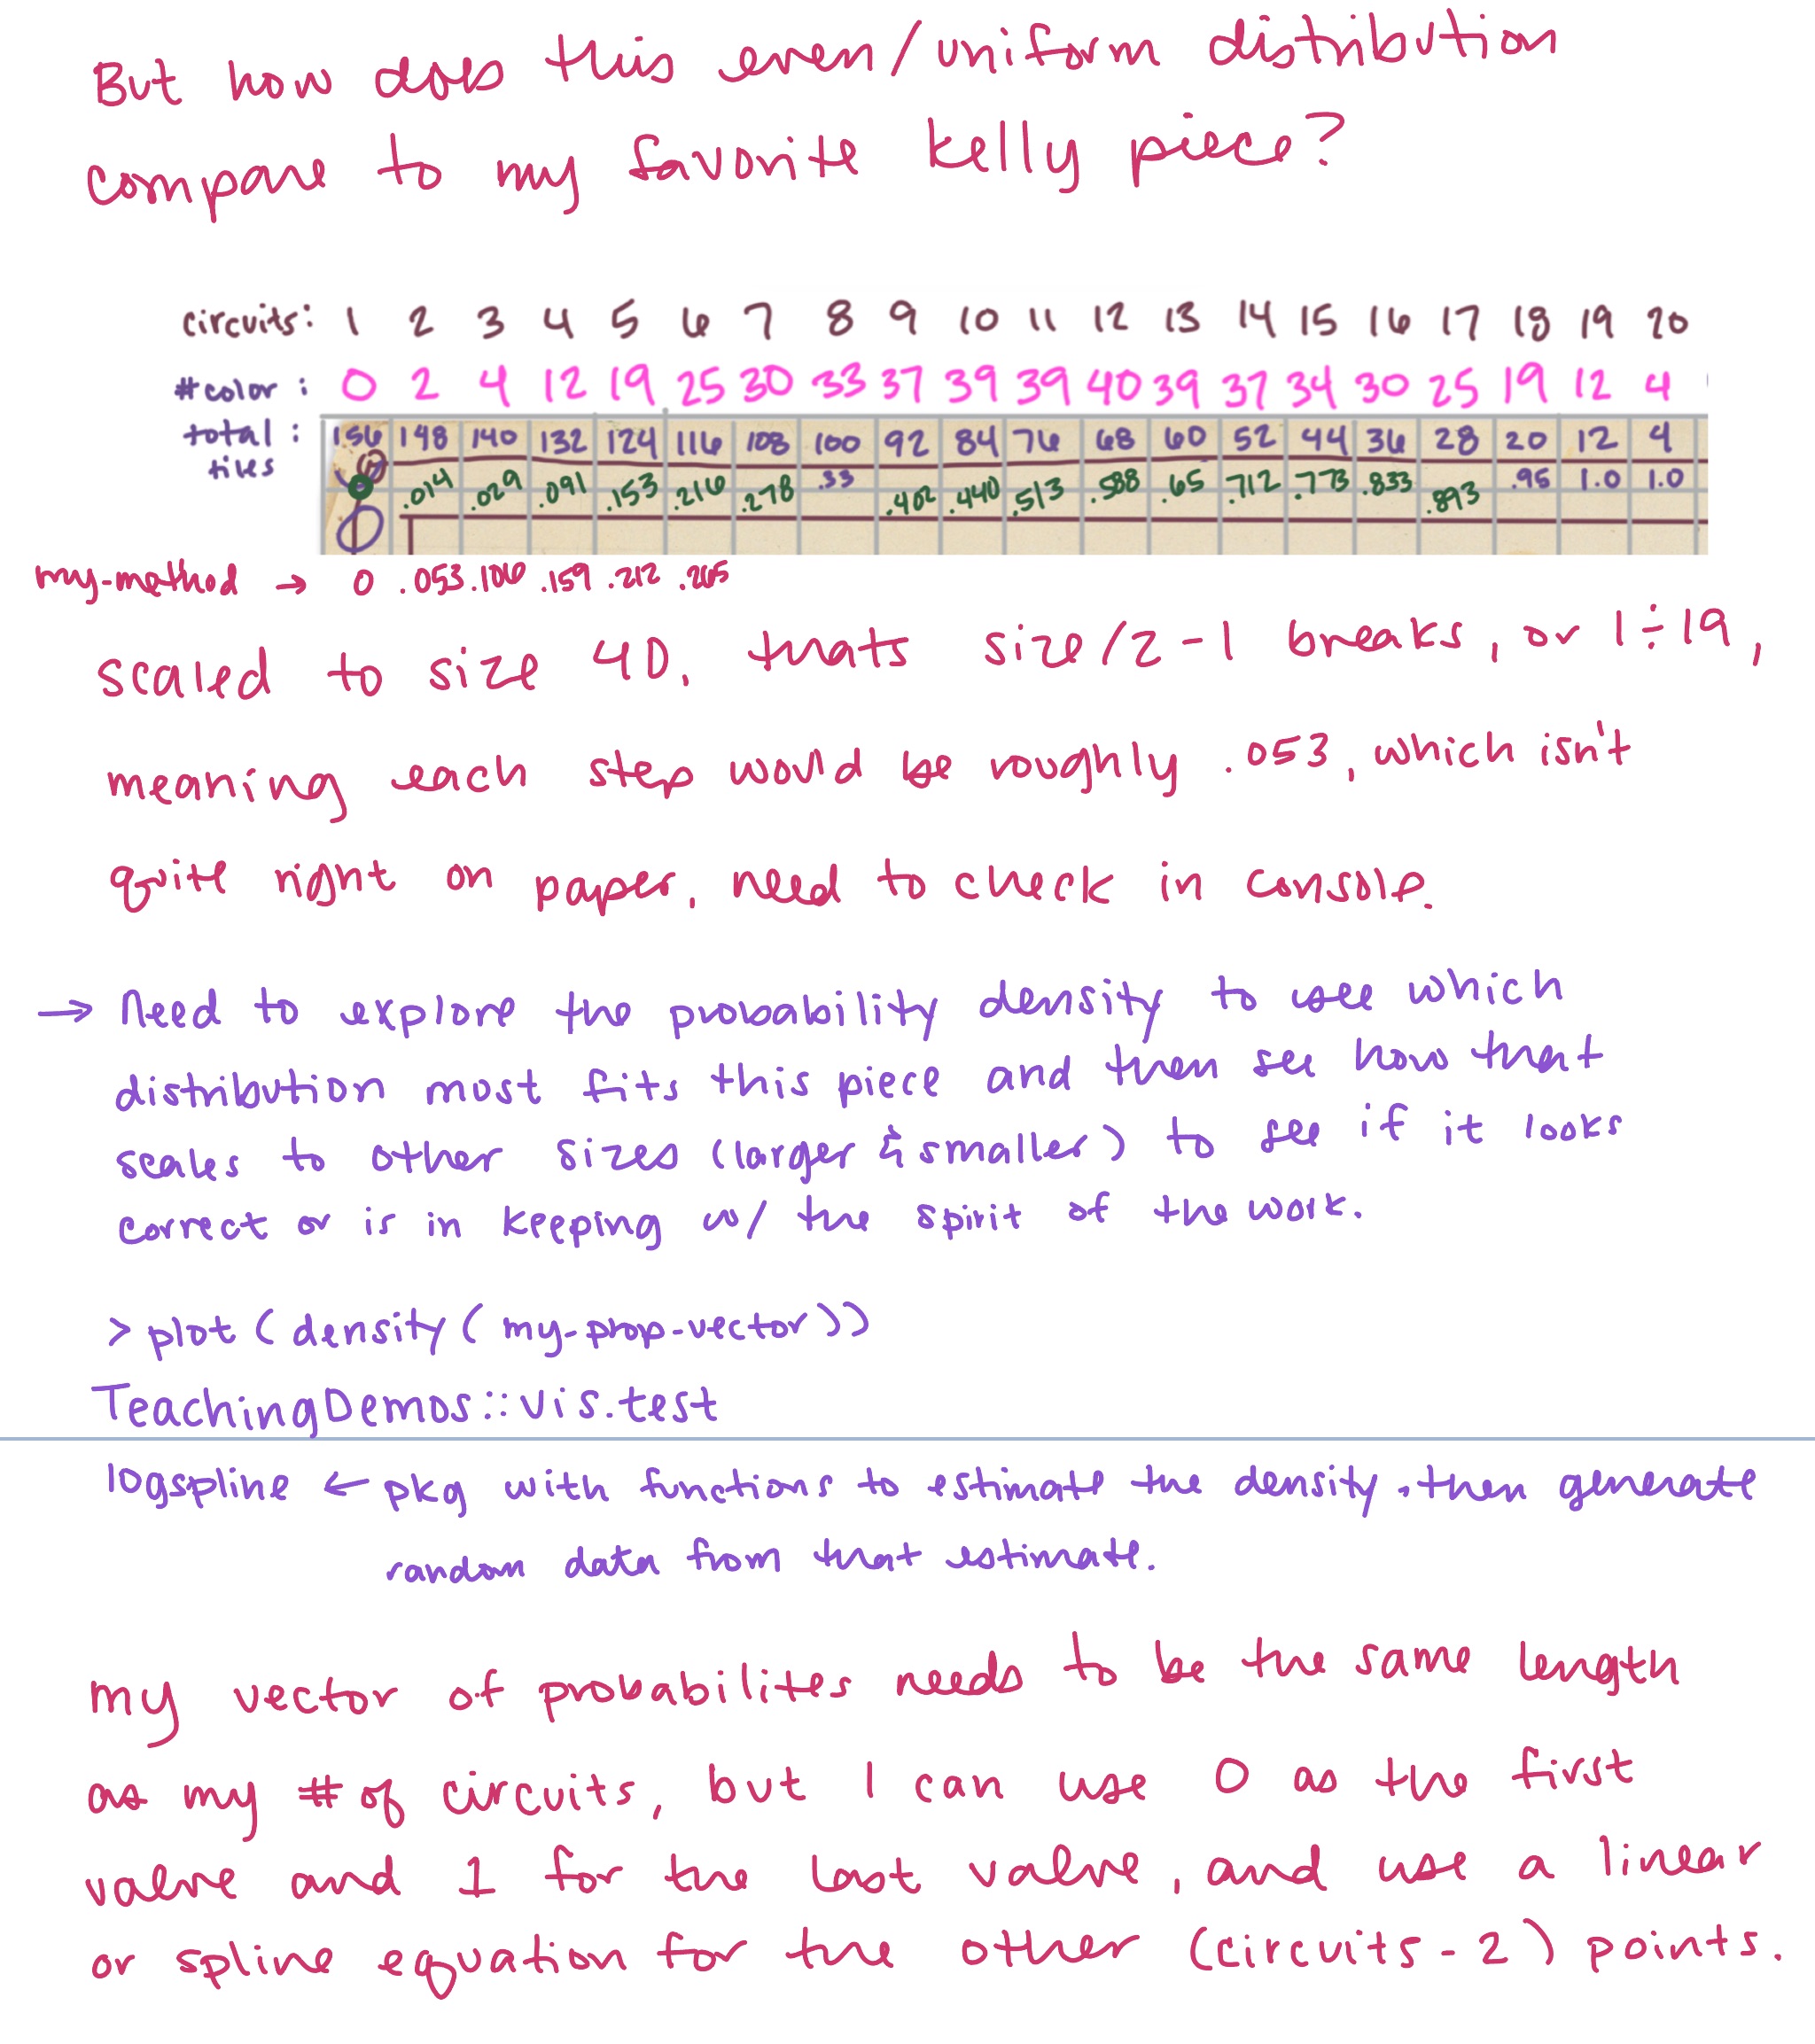 But how does this even/uniform distribution
compare to my favorite kelly piece?
circuits: 1 2 3 4 5 6 7 8 9 10 11 12 13 14 15 16 17 18 19 20
#color: 0 2 4 12 19 25 30 33 37 39 39 40 39 37 34 30 25 19 12 4
total: 156 148 140 132 124 116 108 100 92 84 76 68 60 52 44 36 28 20 12 4
tiles .014 .029 .091 .153 .216 .278 .33 .402 .440 .513 .588 .65 .712 .773 .833 .893 .95 1.0 1.0
0
my-method → 0 .053 .106 .159 .212 .265
scaled to size 40, thats size/2-1 breaks, or 1÷19,
meaning each step would be roughly .053, which isn't
quite right on paper, need to check in console.
→ Need to explore the probability density to see which
distribution most fits this piece and then see how that
scales to other sizes (larger & smaller) to see if it looks
correct or is in keeping w/ the spirit of the work.
> plot(density(my-prop-vector))
TeachingDemos::vis.test
logspline ← pkg with functions to estimate the density, then generate
random data from that estimate.
my vector of probabilites needs to be the same length
as my # of circuits, but I can use 0 as the first
value and 1 for the last value, and use a linear
or spline equation for the other (circuits-2) points.